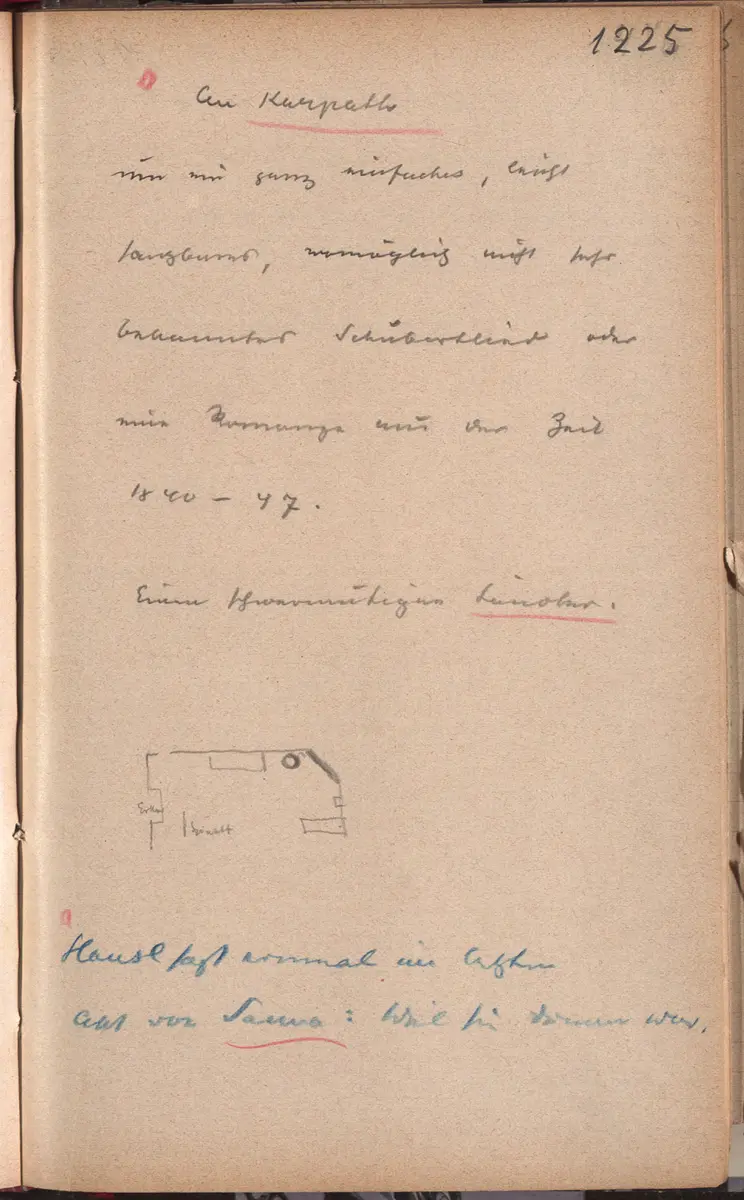 1225
An Karpath
um ein ganz einfaches, leicht
sangbares, womöglich nicht sehr
bekanntes Schubertlied oder
eine Romanze aus der Zeit
1840 – 47.
Einen schwermütigen Ländler.
Erker
Hansl sagt einmal im letzten
Akt von : Weil sie dumm war.